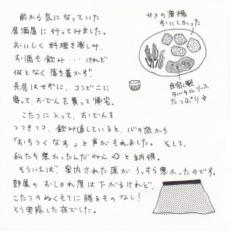 前から気になっていた
居酒屋に行ってみました。
おいしく料理を楽しみ、
お酒も飲み…けれど
何となく落ち着かず
長居はせずに、コンビニに
寄って、おでんを買って帰宅。
こたつに入って、おでんを
つつきつつ、飲み直していると、心の底から
“おちつくなす”と声がもれました。そして、
私たち悪かったんだねんと納得。
もういえば、案内された席が、うすら寒かったのです。
部屋のおしゃれ度は下がるけれど、
こたつのぬくもりに勝るものなし!
もう実感した夜でした。
サメの唐揚
おいしかった
自家製
タルタルソース
たっぷり